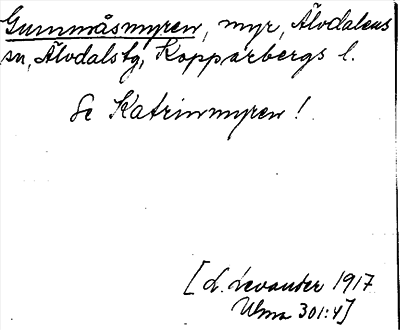 Gummåsmyren, myr, Älvdalens
sn, Älvdalstg, Kopparbergs l.
Se Katrinmyren!
[L. Levander 1917
Ulma 301:4]